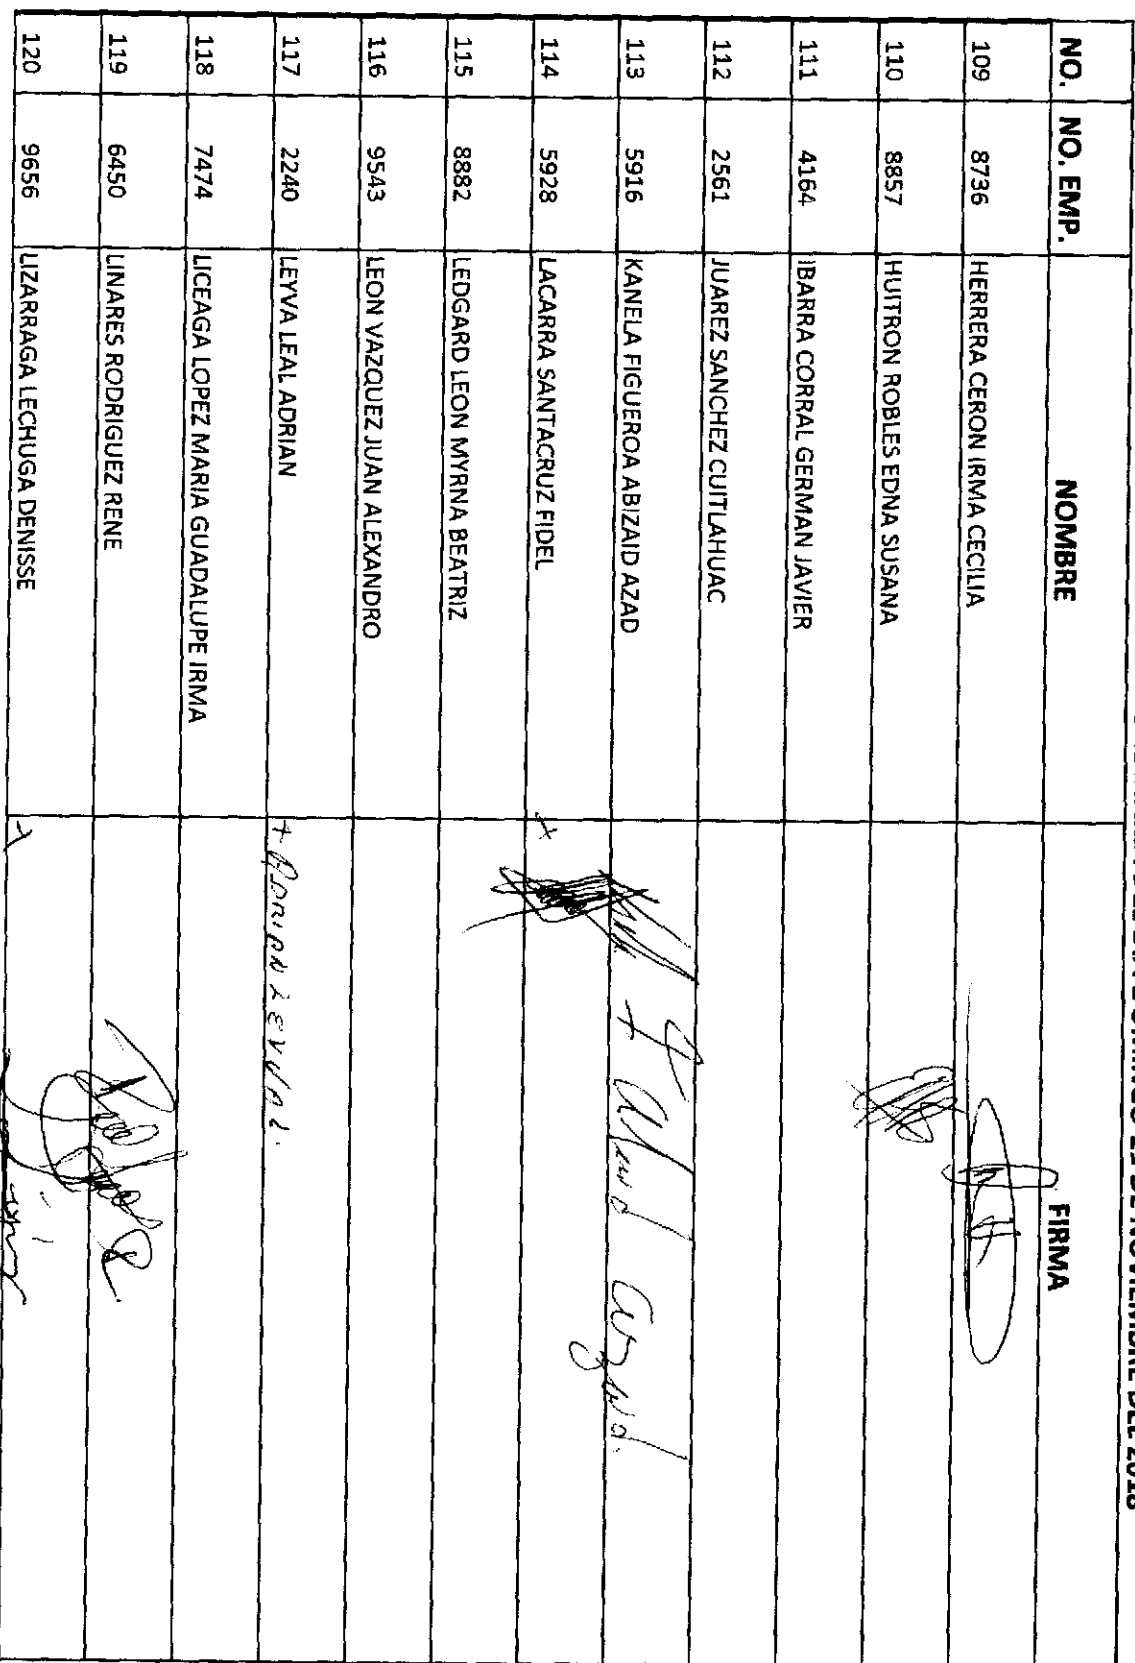 NOVIEMBRE DEL 2018
NO. NO. EMP. NOMBRE FIRMA
109 8736 HERRERA CERON IRMA CECILIA
110 8857 HUITRON ROBLES EDNA SUSANA
111 4164 IBARRA CORRAL GERMAN JAVIER
112 2561 JUAREZ SANCHEZ CUITLAHUAC
113 5916 KANELA FIGUEROA ABIZAID AZAD
114 5928 LACARRA SANTACRUZ FIDEL
115 8882 LEDGARD LEON MYRNA BEATRIZ
116 9543 LEON VAZQUEZ JUAN ALEXANDRO
117 2240 LEYVA LEAL ADRIAN
118 7474 LICEAGA LOPEZ MARIA GUADALUPE IRMA
119 6450 LINARES RODRIGUEZ RENE
120 9656 LIZARRAGA LECHUGA DENISSE